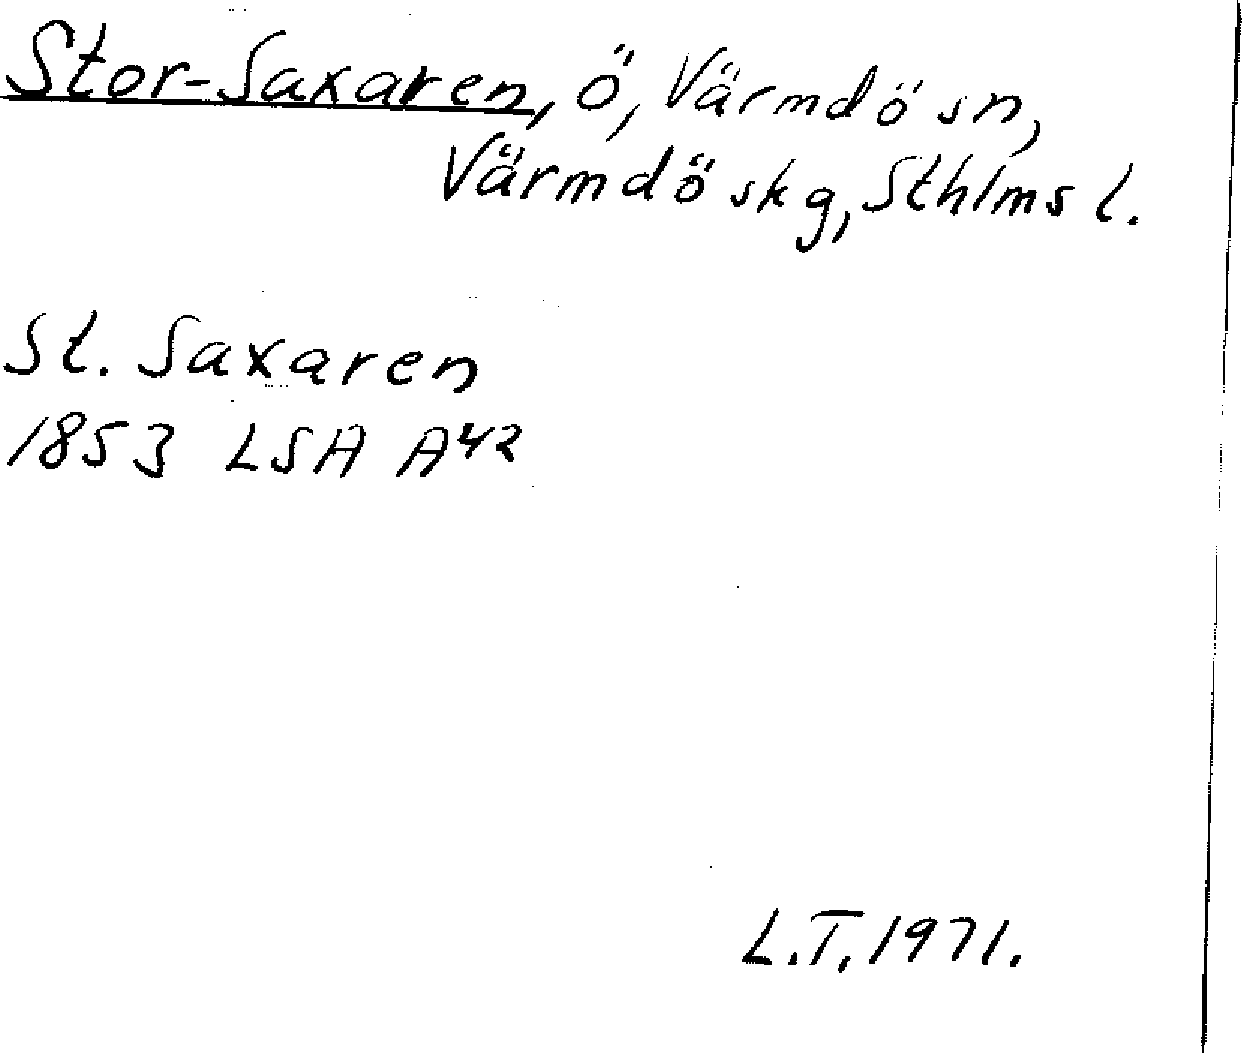 Stor-Saxaren, ö, Värmdö sn,
Värmdö skg, Sthlms l.
St. Saxaren
1853 LSA A42
L.T. 1971.